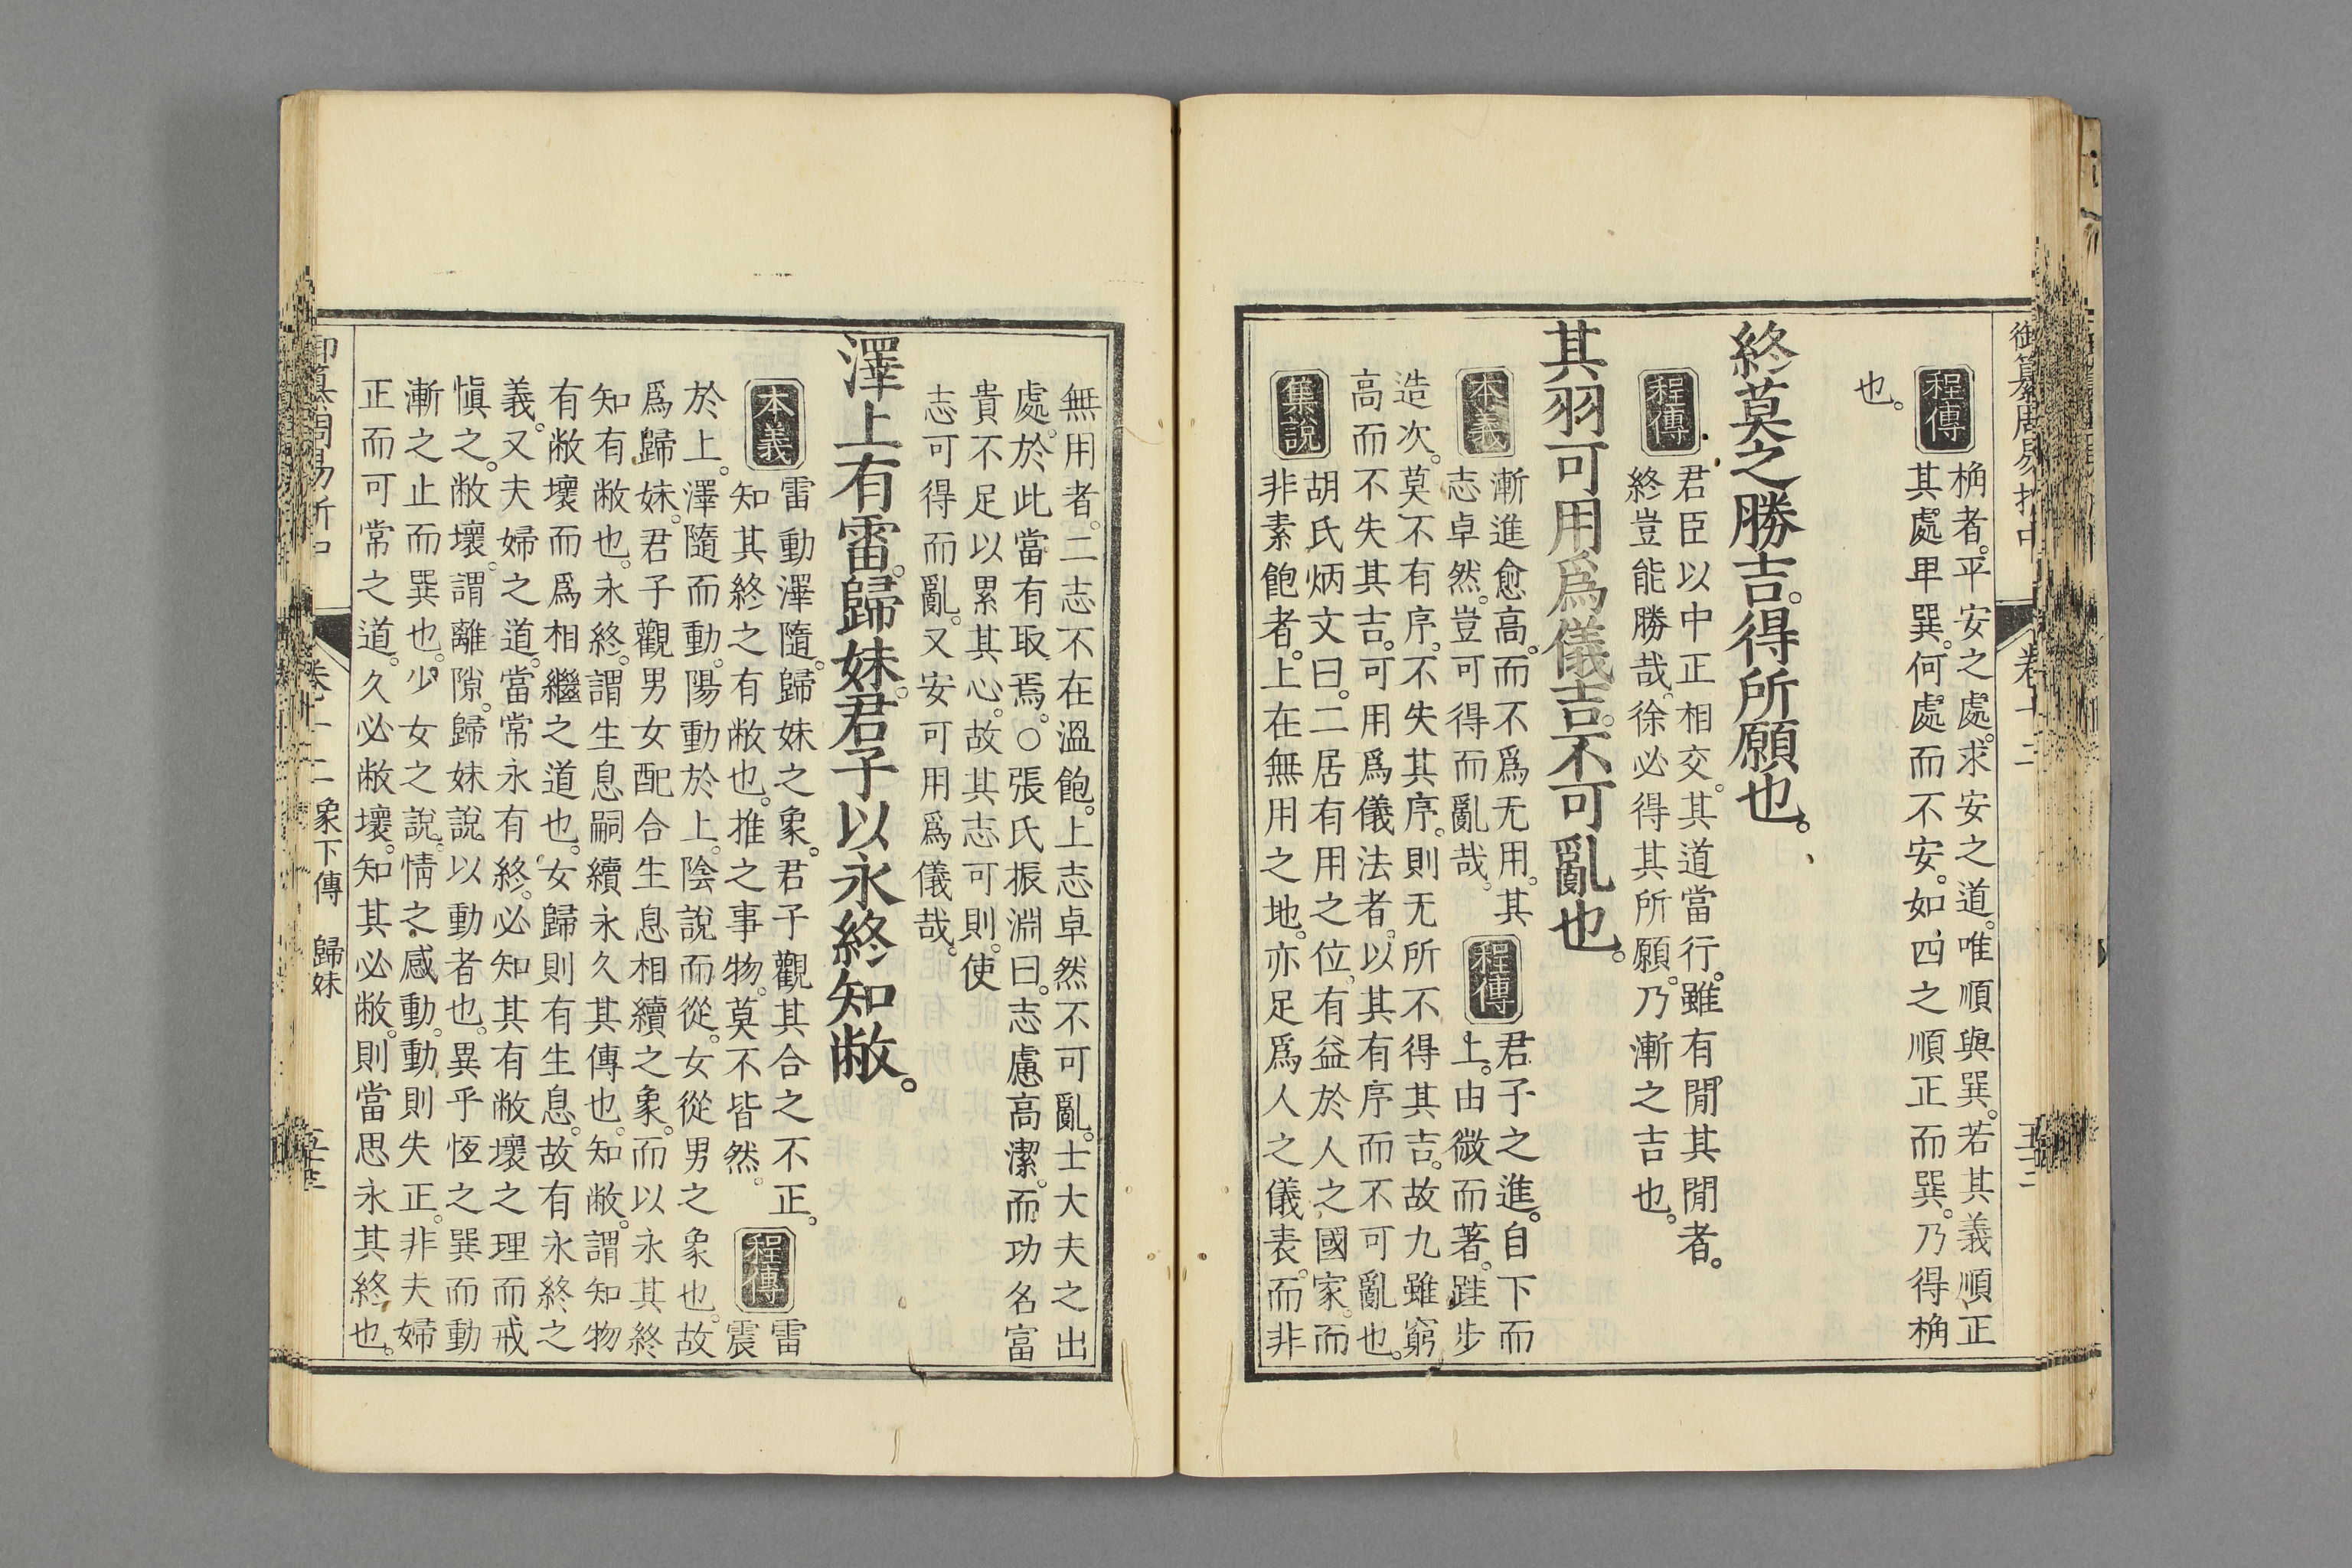 御纂周易折中 卷十二
程傳 桷者。平安之處。求安之道。唯順與巽。若其義順正
其處卑巽。何處而不安。如四之順正而巽。乃得桷
也。
終莫之勝吉。得所願也。
程傳 君臣以中正相交。其道當行。雖有閒其閒者。
終豈能勝哉。徐必得其所願。乃漸之吉也。
其羽可用爲儀吉。不可亂也。
本義 漸進愈高。而不爲无用。其
志卓然。豈可得而亂哉。
程傳 君子之進。自下而
上。由微而著。跬步
造次。莫不有序。不失其序。則无所不得其吉。故九雖窮
高而不失其吉。可用爲儀法者。以其有序而不可亂也。
集說 胡氏炳文曰。二居有用之位。有益於人之國家。而
非素飽者。上在無用之地。亦足爲人之儀表。而非
無用者。二志不在溫飽。上志卓然不可亂。士大夫之出
處。於此當有取焉。○張氏振淵曰。志慮高潔。而功名富
貴不足以累其心。故其志可則。使
志可得而亂。又安可用爲儀哉。
澤上有雷。歸妹。君子以永終知敝。
本義 雷動澤隨。歸妹之象。君子觀其合之不正。
知其終之有敝也。推之事物。莫不皆然。
程傳 雷
震
於上。澤隨而動。陽動於上。陰說而從。女從男之象也。故
爲歸妹。君子觀男女配合生息相續之象。而以永其終
知有敝也。永終。謂生息嗣續永久其傳也。知敝。謂知物
有敝壞而爲相繼之道也。女歸則有生息。故有永終之
義。又夫婦之道。當常永有終。必知其有敝壞之理而戒
愼之。敝壞。謂離隙。歸妹說以動者也。異乎恆之巽而動
漸之止而巽也。少女之說。情之感動。動則失正。非夫婦
正而可常之道。久必敝壞。知其必敝。則當思永其終也。
御纂周易折中 卷十二 象下傳 歸妹